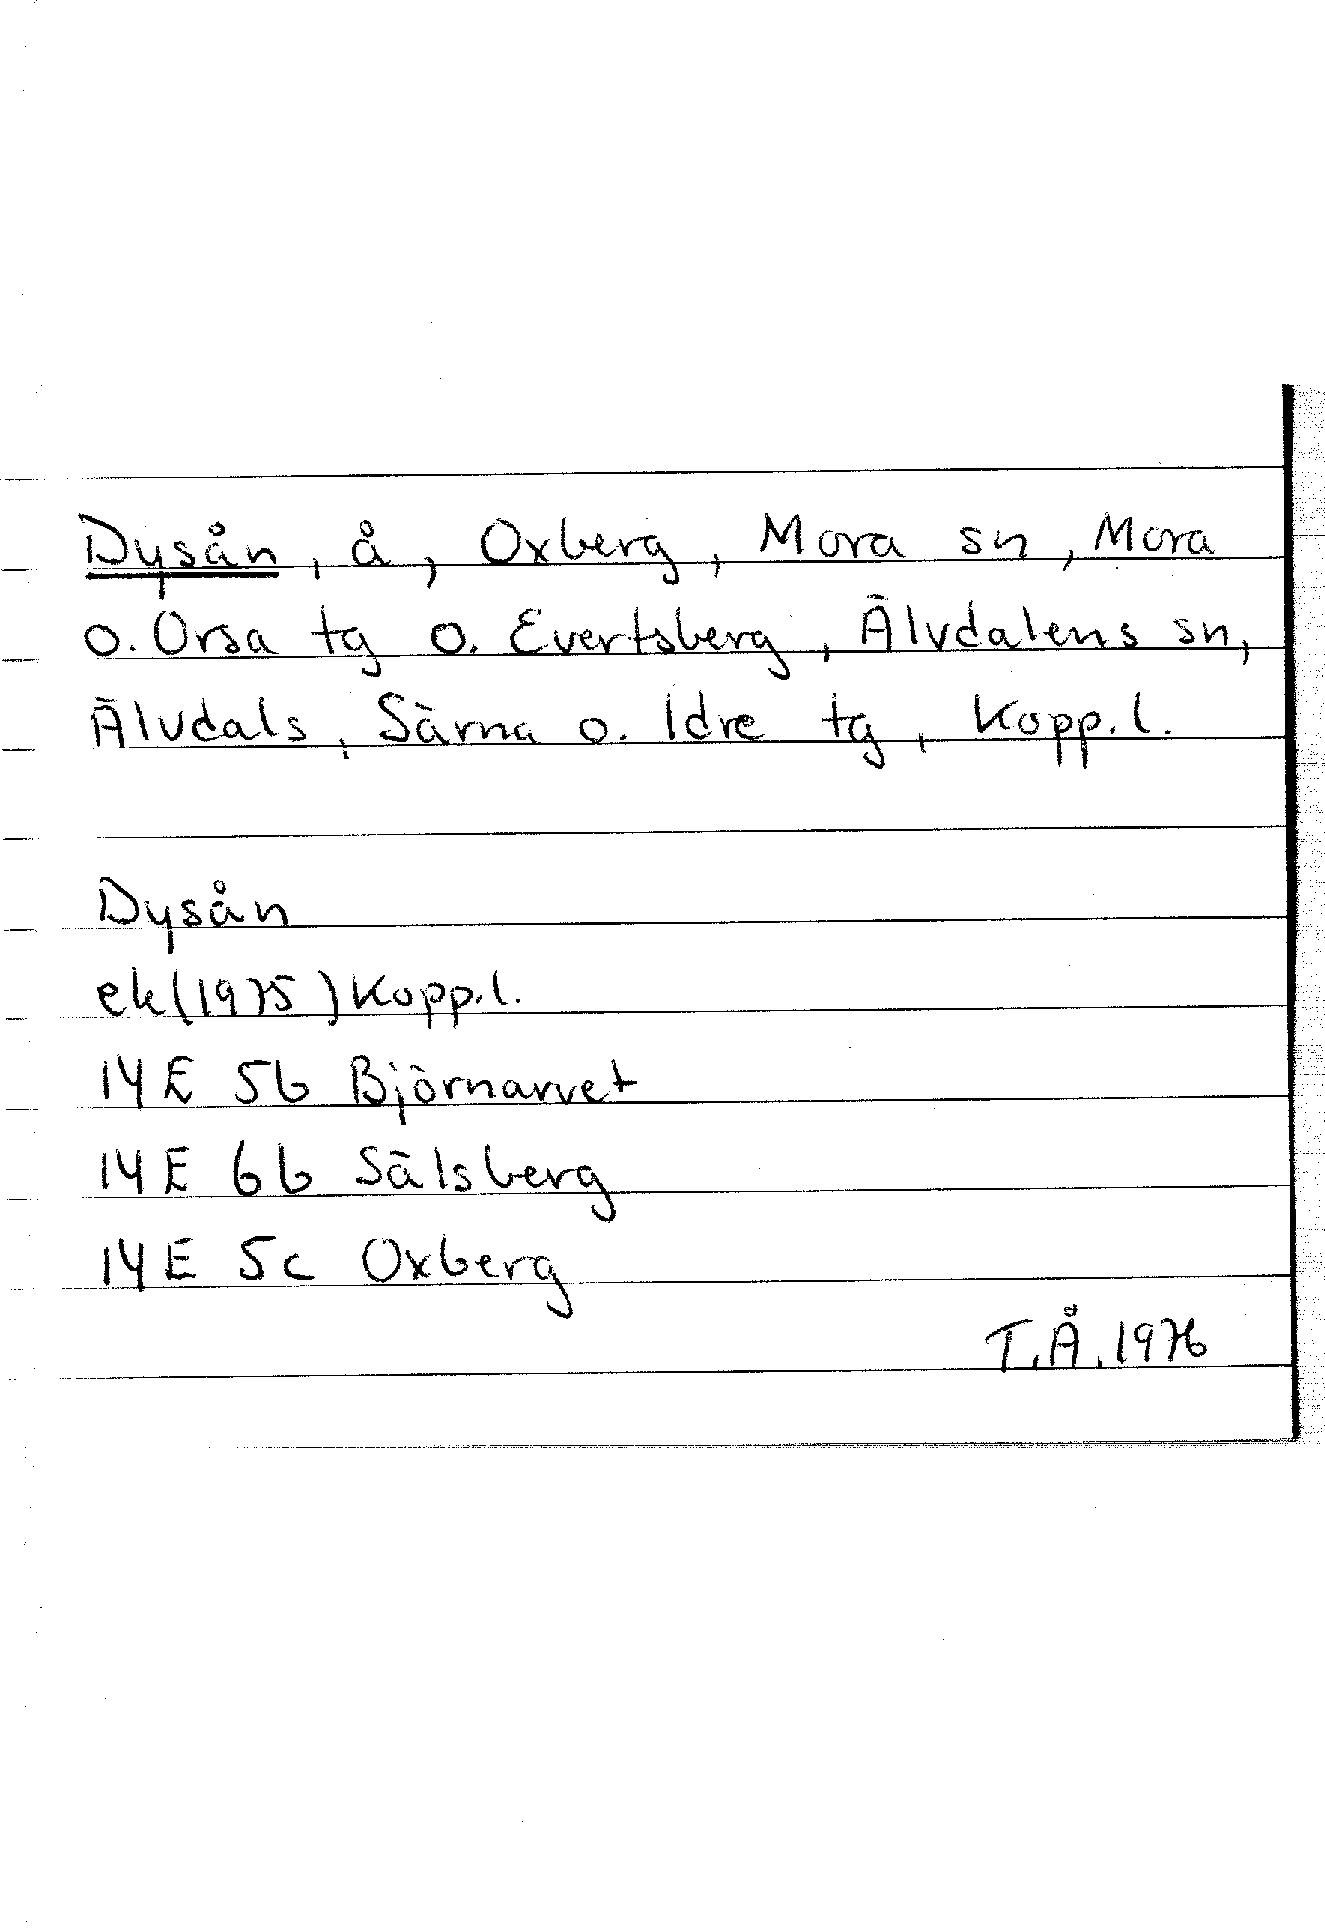 Dysån, å, Oxberg, Mora sn, Mora
o. Orsa tg o. Evertsberg, Älvdalens sn,
Älvdals, Särna o. Idre tg, Kopp.l.
Dysån
ek(1975) Kopp.l.
14E 5b Björnarvet
14E 6b Sälsberg
14E 5c Oxberg
T.Å. 1976